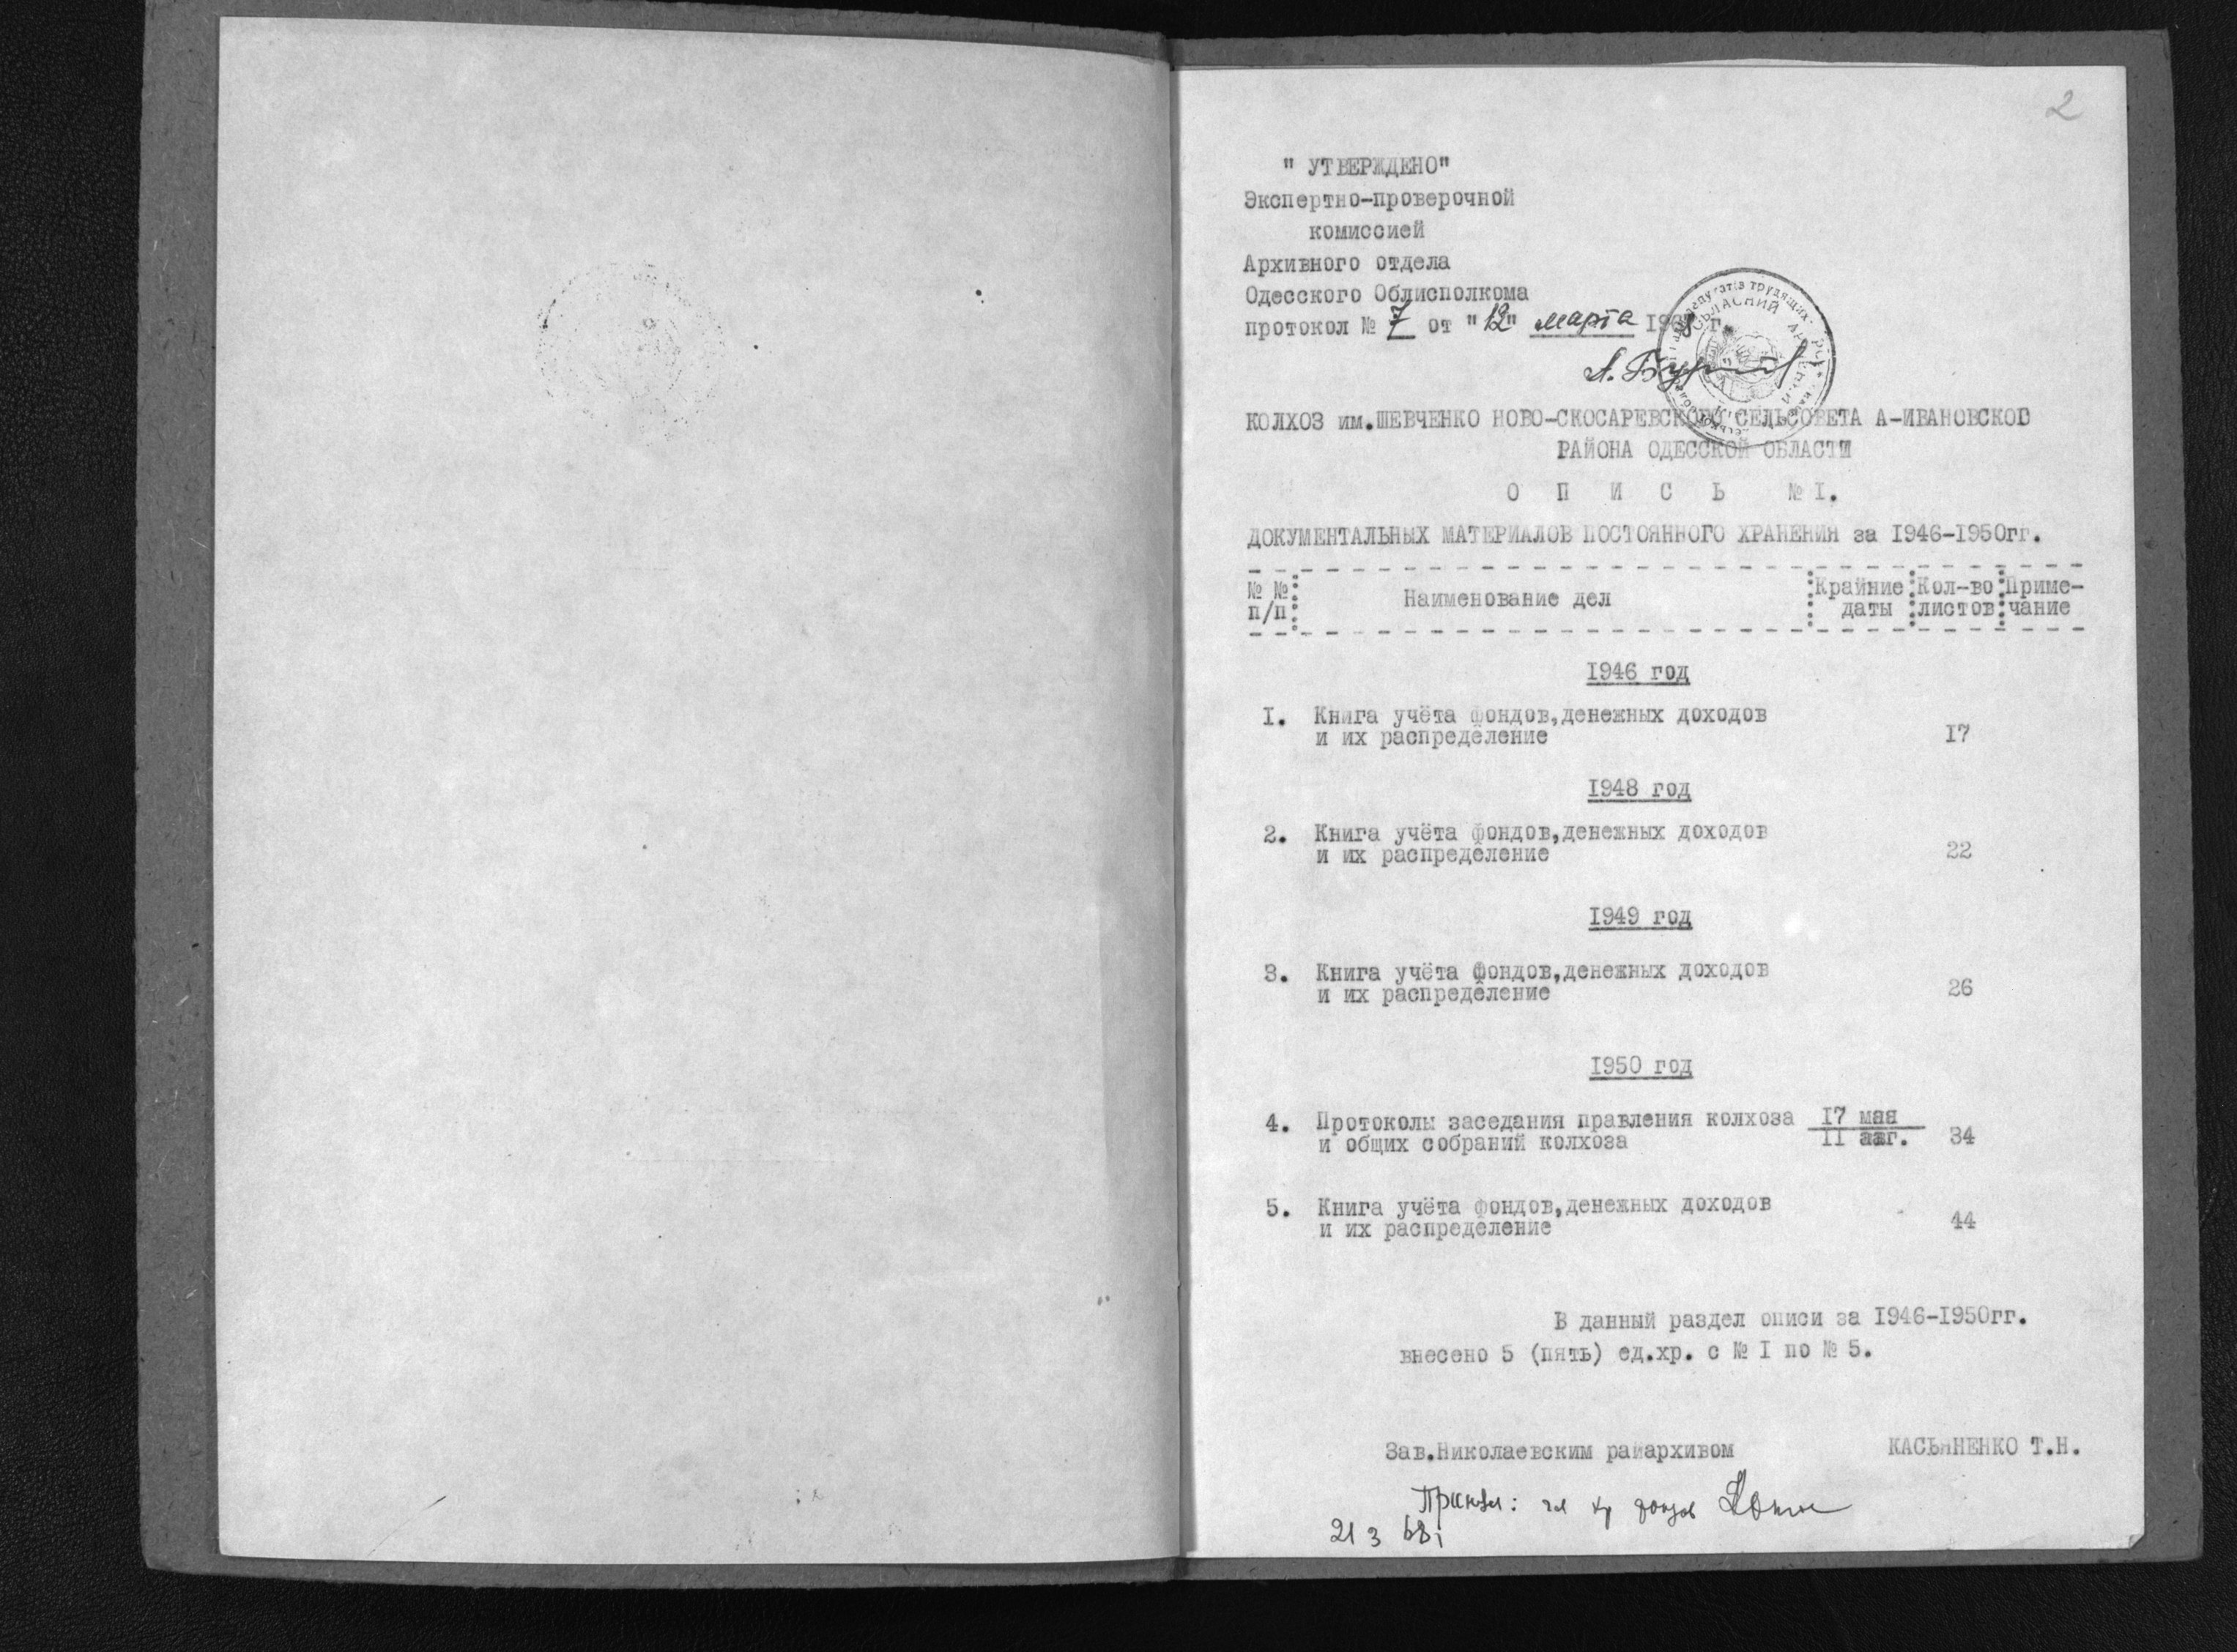 2
" УТВЕРЖДЕНО"
Экспертно-проверочной
комиссией
Архивного отдела
Одесского Облисполкома
протокол № 7 от "12" марта 1968 г.
КОЛХОЗ им.ШЕВЧЕНКО НОВО-СКОСАРЕВСКОГО СЕЛЬСОВЕТА А-ИВАНОВСКОГО
РАЙОНА ОДЕССКОЙ ОБЛАСТИ
О П И С Ь № I.
ДОКУМЕНТАЛЬНЫХ МАТЕРИАЛОВ ПОСТОЯННОГО ХРАНЕНИЯ за I946-I950гг.
№ № п/п Наименование дел Крайние даты Кол-во листов Приме-чание
I946 год
I. Книга учёта фондов,денежных доходов
и их распределение I7
I948 год
2. Книга учёта фондов,денежных доходов
и их распределение 22
I949 год
3. Книга учёта фондов,денежных доходов
и их распределение 26
I950 год
4. Протоколы заседания правления колхоза I7 мая
и общих собраний колхоза II авг. 34
5. Книга учёта фондов,денежных доходов
и их распределение 44
В данный раздел описи за I946-I950гг.
внесено 5 (пять) ед.хр. с № I по № 5.
Зав.Николаевским райархивом КАСЬЯНЕНКО Т.Н.
Принял:
21 3 68